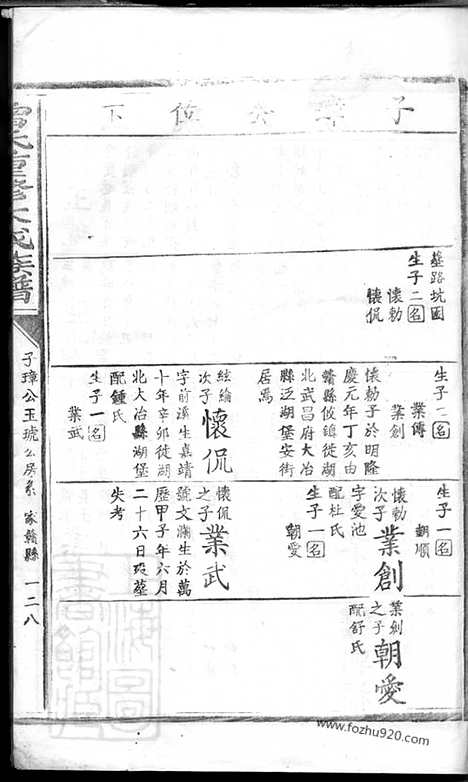 子璋公位下
墓路坑園
生子二名
懷勅
懷侃
生子二名
業傳
業創
懷勅子於明隆
慶元年丁亥由
贛縣攸鎮從湖
北武昌府大冶
縣泛湖堡安街
居焉
絃綸
次子
懷侃
字前溪生嘉靖
十年辛卯徒湖
北大冶縣湖堡
配鍾氏
生子一名
業武
生子一名
朝順
懷勅
次子
業創
字愛池
配杜氏
生子一名
朝愛
懷侃
之子
業武
號文滿生於萬
曆甲子年六月
二十六日歿墓
失考
業創
之子
朝愛
配舒氏
雷氏重修大成族譜
子璋公玉琥公房系
家贛縣
一二八
www.fozhu920.com